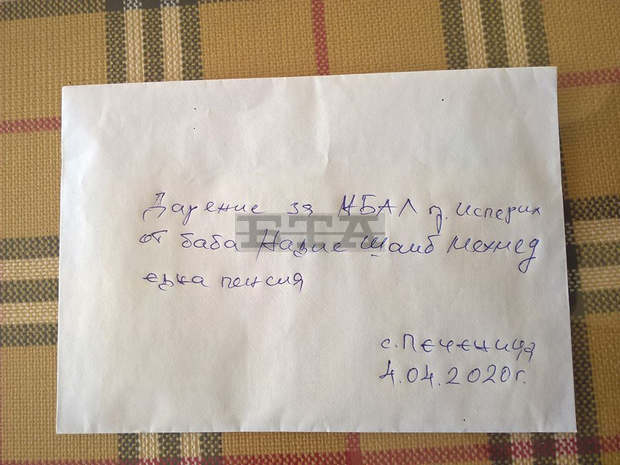 Дарение за МБАЛ гр. Исперих
от баба Назие Шаиб Мехмед
една пенсия
с. Печеница
4.04.2020г.
БТА